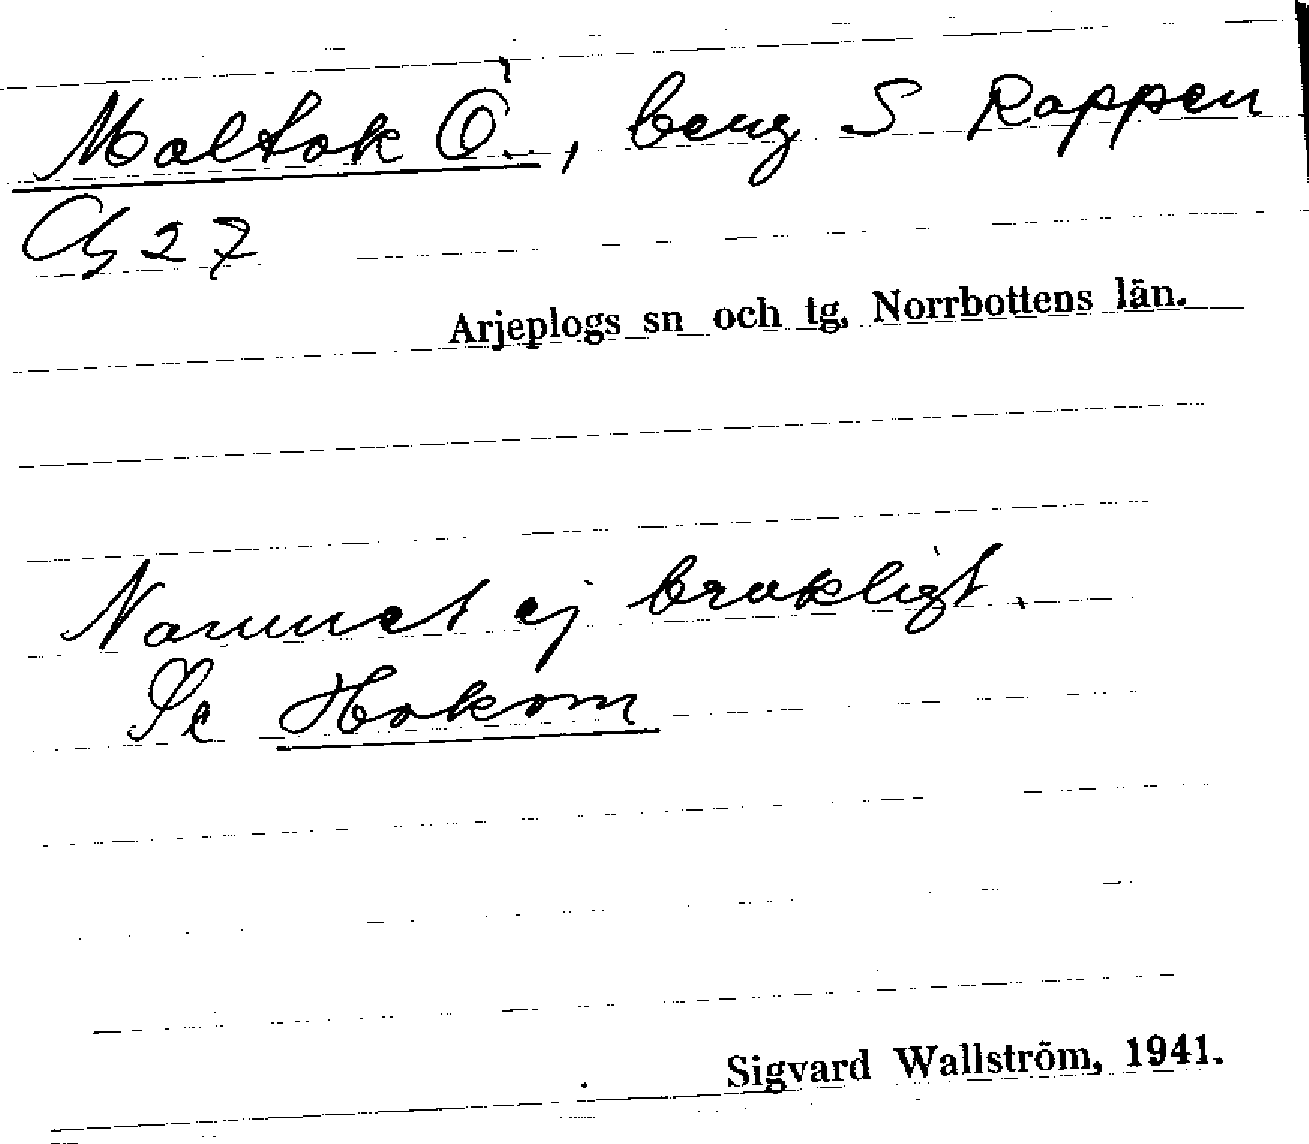 Maltok Ö., berg S Rappen
Cg 27
Arjeplogs sn och tg, Norrbottens län.
Namnet ej brukligt.
Se Hokom
Sigvard Wallström, 1941.